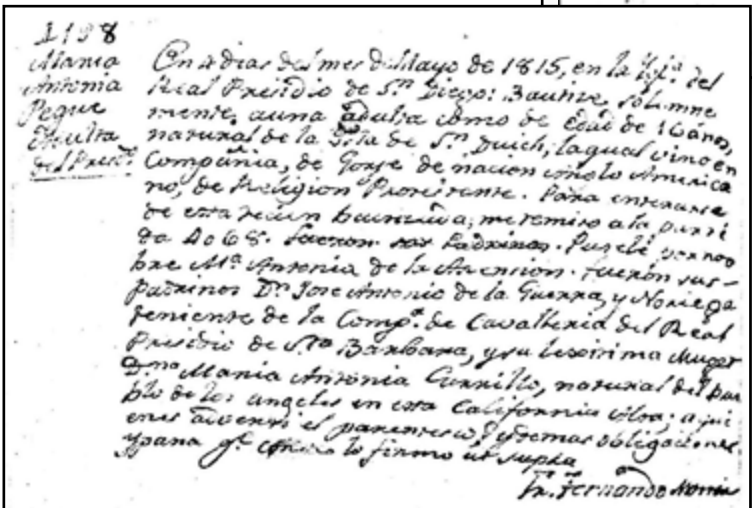 1198
Maria
Antonia
Peque
Adulta
del Presº
En 4 dias del mes de Mayo de 1815, en la Yglª del
Real Presidio de Sⁿ Diego: Bautize, solemne
mente, a una adulta como de edad de 16 años,
natural de la Ysla de Sⁿ Duich, la qual vino en
Compañia, de Jorje de nacion Anglo America
no, de Religion Protestante. Para enterarse
de esta recien bautizada, me remito a la parti
da 4068. fueron sus Padrinos. Puse le por nom
bre Mª Antonia de la Ascension. fueron sus
Padrinos Dⁿ Jose Antonio de la Guerra, y Noriega
teniente de la Compª de Cavalleria del Real
Presidio de Sᵗᵃ Barbara, y su lexitima Muger
Dⁿª Maria Antonia Carrillo, natural del pue
blo de los Angeles en esta California Alta; a qui
enes adverti el parentesco, y demas obligaciones
y para qᵉ conste lo firmo ut supra
Fr. Fernando Martin